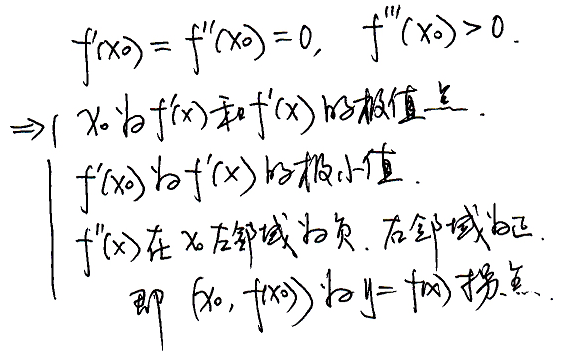 f'(x₀) = f''(x₀) = 0, f'''(x₀) > 0.
⇒ x₀为f'(x)和f'(x)的极值点.
f'(x₀)为f'(x)的极小值.
f''(x)在x₀左邻域为负.右邻域为正.
即 (x₀, f(x₀))为y = f(x)拐点.